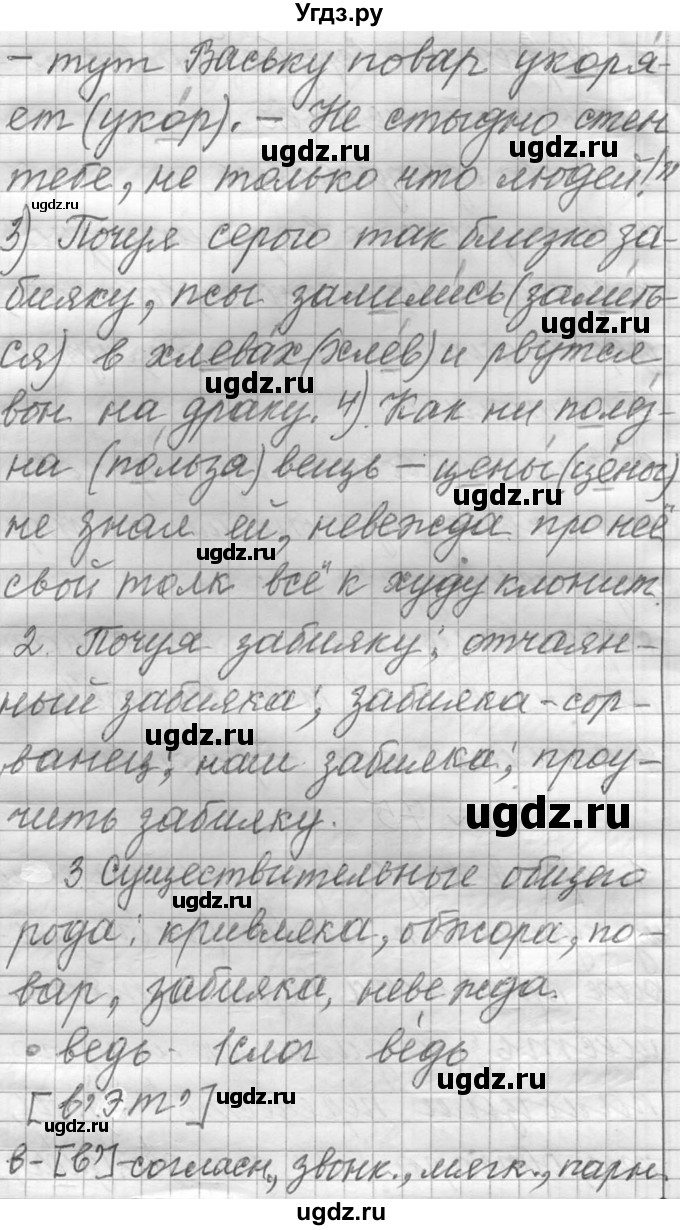 Угдз.ру
– тут Ваську повар укоря-
ет (укор). – Не стыдно стен
ugdz.ru
тебе, не только что людей!"
ugdz.ru
3) Почуя серого так близко за-
бияку, псы залились (залить-
ugdz.ru
ся) в хлевах (хлев) и рвутся
ugdz.ru
вон на драку. 4) Как ни полез-
на (польза) вещь – цены (цены)
ugdz.ru
не знал ей, невежда про неё
ugdz.ru
свой толк всё к худу клонит.
2. Почуя забияку; отчаян-
ugdz.ru
ный забияка; забияка-сор-
ugdz.ru
ванец; наш забияка; проу-
чить забияку.
ugdz.ru
3 Существительные общего
ugdz.ru
рода: кривляка, обжора, по-
вар, забияка, невежда.
• ведь - 1 слог ведь
ugdz.ru
[в' э т']
ugdz.ru
ugdz.ru
в - [в'] - согласн., звонк., мягк., парн.
ugdz.ru